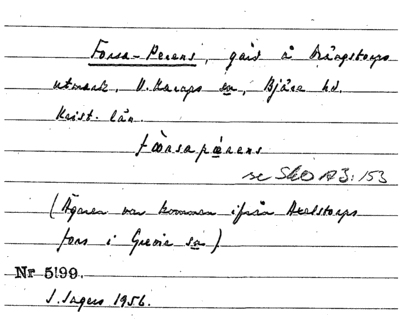 Forsa-Perens, gård å Mångstorps
utmark, V. Karaps sn, Bjäre hd.
Krist. län.
fo̊rsapærens
se SkO A3:153
(Ägaren var kommen ifrån Axelstorps
fors i Grevie sn)
Nr 5199.
I. Ingers 1956.